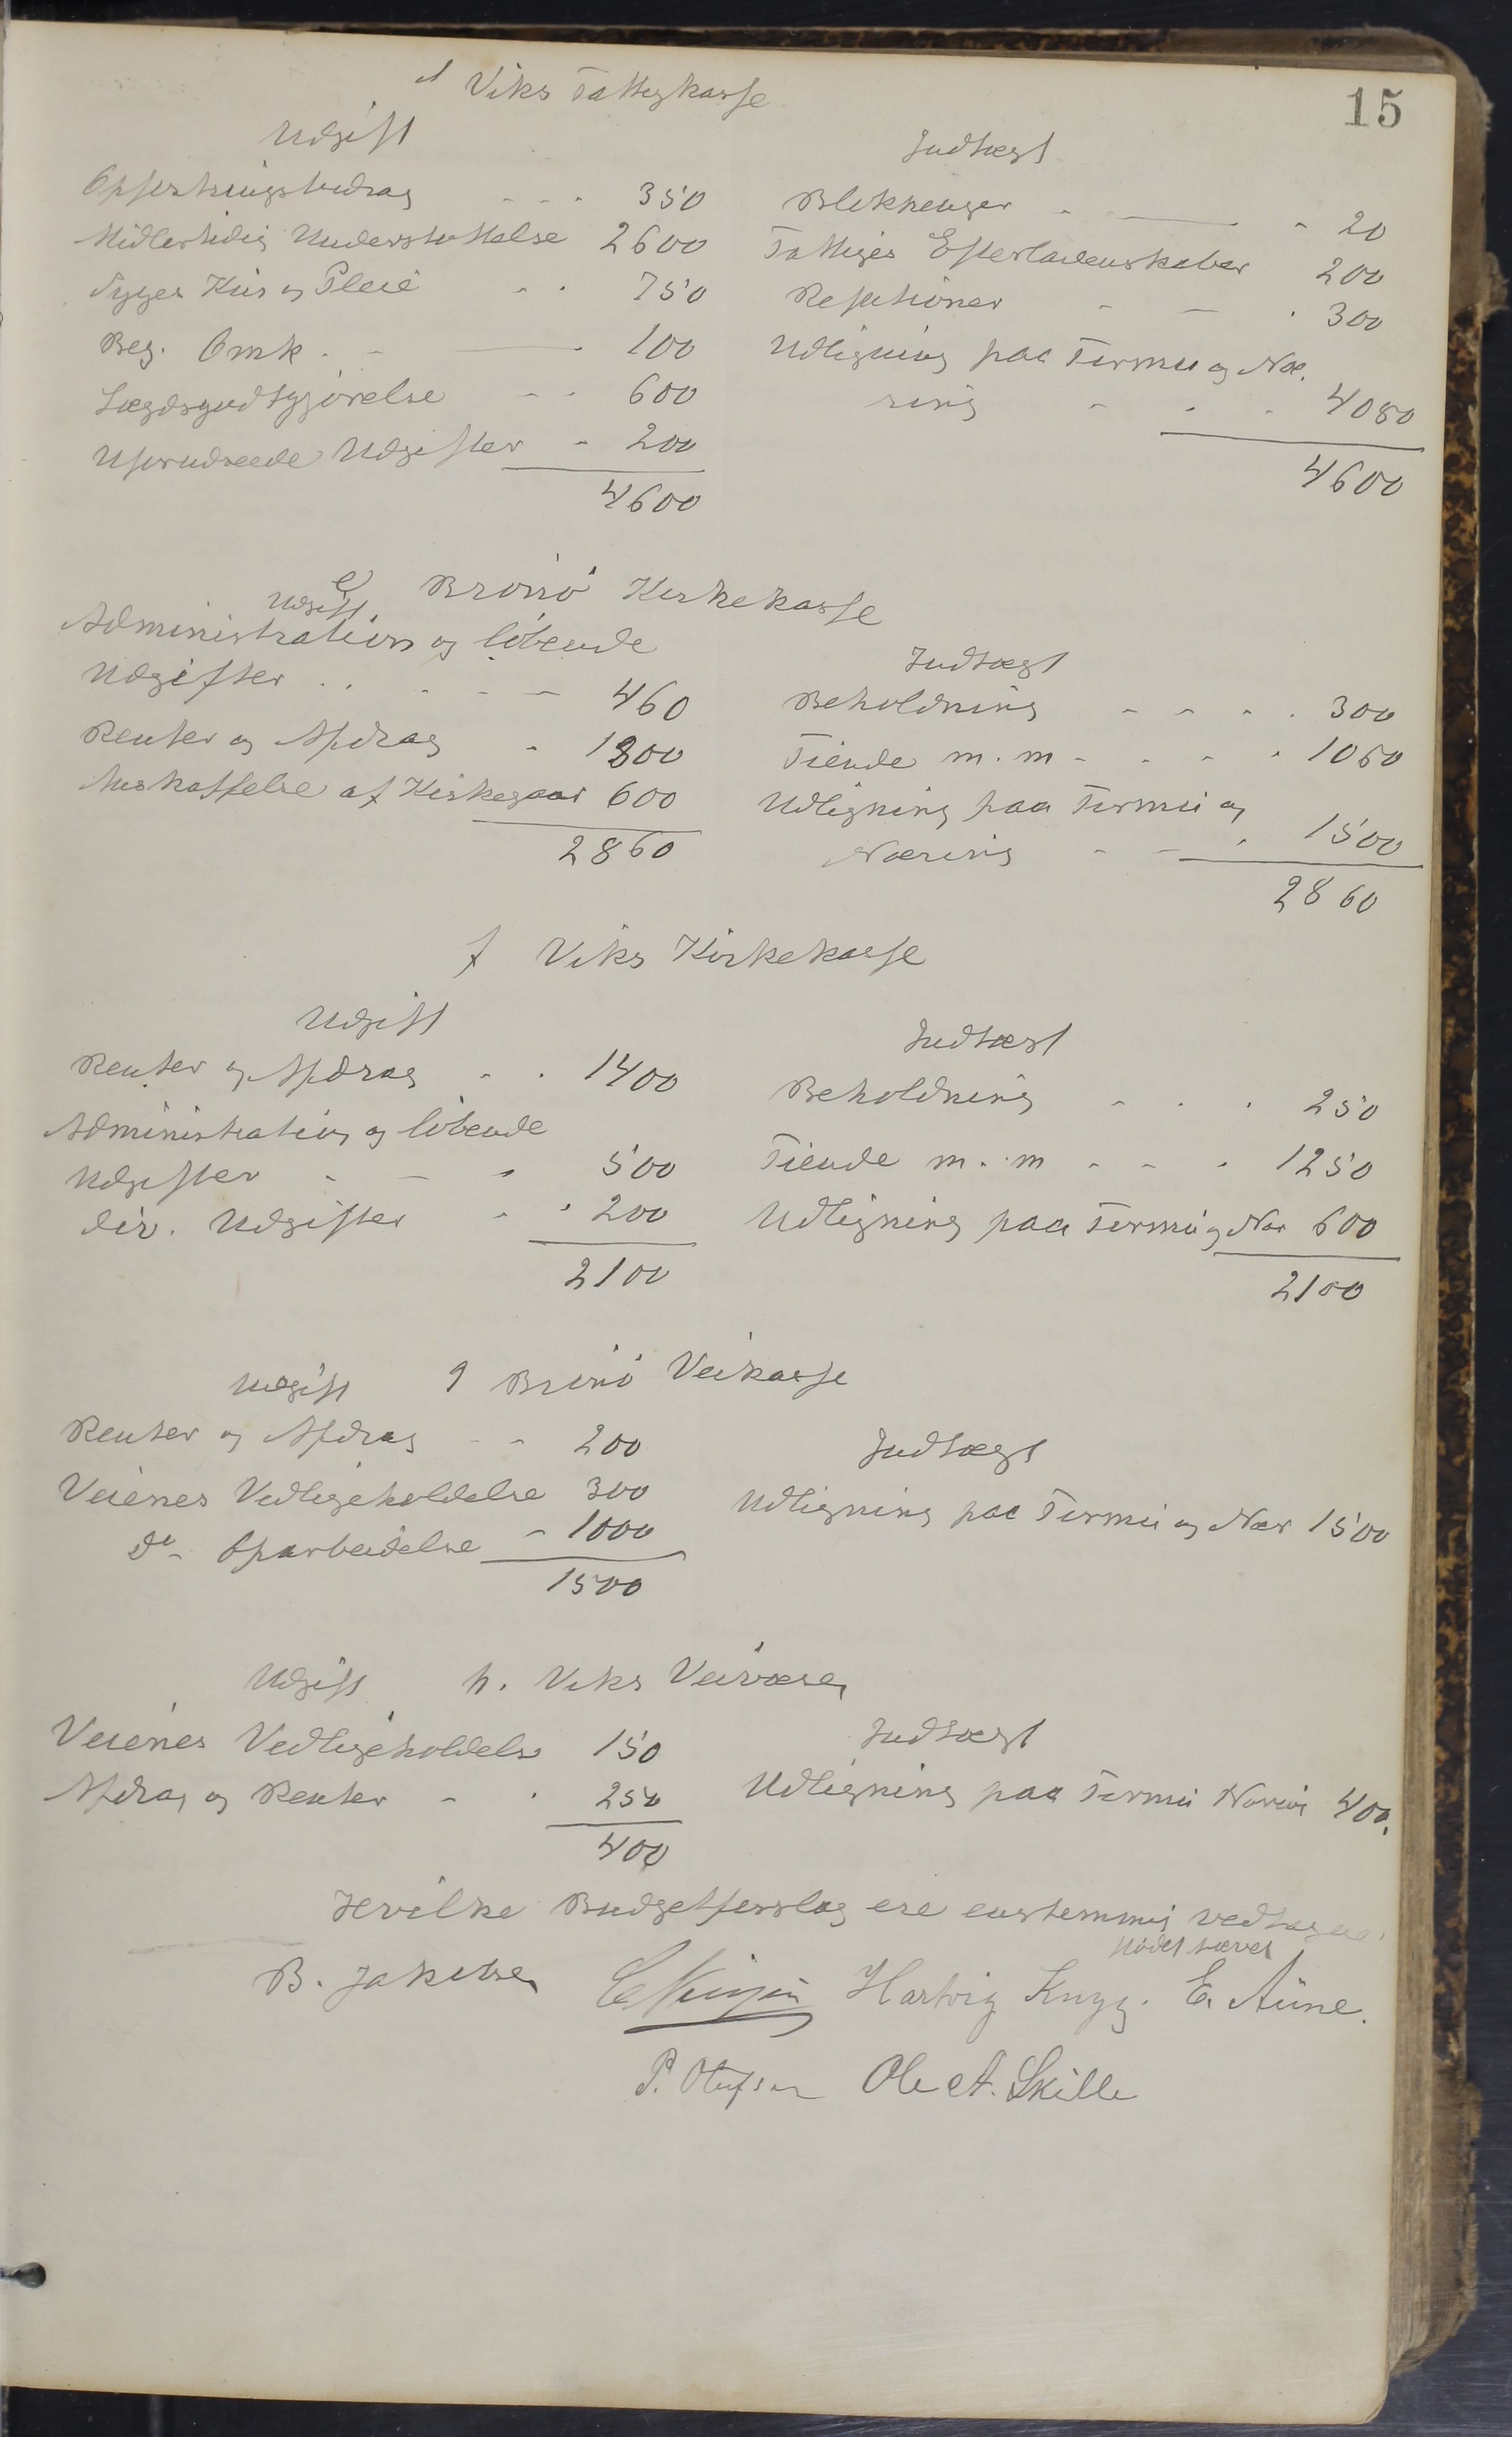 15
d Viks Fattigkasse
Udgift
Opfostringsbidrag - - - 350
Midlertidig Understøttelse 2600
Syges Kur og Pleie - - 750
Beg. Omk. - — 100
Lægdsgodtgjørelse - - 600
Uforudseede Udgifter - 200
4600
Indtægt
Blekpenger - — - 20
Fattiges Efterladenskaber 200
Refutioner - - - 300
Udligning paa Formue og Næ.
ring - - - 4080
4600
e Brønø Kirkekasse
Udgift
Administration og løbende
Udgifter . . - - - 460
Renter og Afdrag - 1800
Anskaffelse af Kirkegaar 600
2860
Indtægt
Beholdning - - - - 300
Tiende m.m - - - - 1060
Udligning paa Formue og
Næring - - - 1500
2860
f Viks Kirkekasse
Udgift
Renter og Afdrag - - 1400
Administration og løbende
Udgifter - - - 500
div. Udgifter - - 200
2100
Indtægt
Beholdning - - - 250
Tiende m.m - - - 1250
Udligning paa Formue og Nær 600
2100
Udgift g Brønø Veikasse
Renter og Afdrag - - 200
Veienes Vedligeholdelse 300
Do - Oparbeidelse - 1000
1500
Indtægt
Udligning paa Formue og Nær 1500
Udgift h. Viks Veivæsen
Veienes Vedligeholdelse 150
Afdrag og Renter - - 250
400
Indtægt
Udligning paa Formue Næring 400.
Hvilke Budgetforslag ere enstemmig vedtagne.
Mødet hævet
B. Jakobsen Hartvig Knyg. E. Aune.
P. Olufsen Ole A. Skille